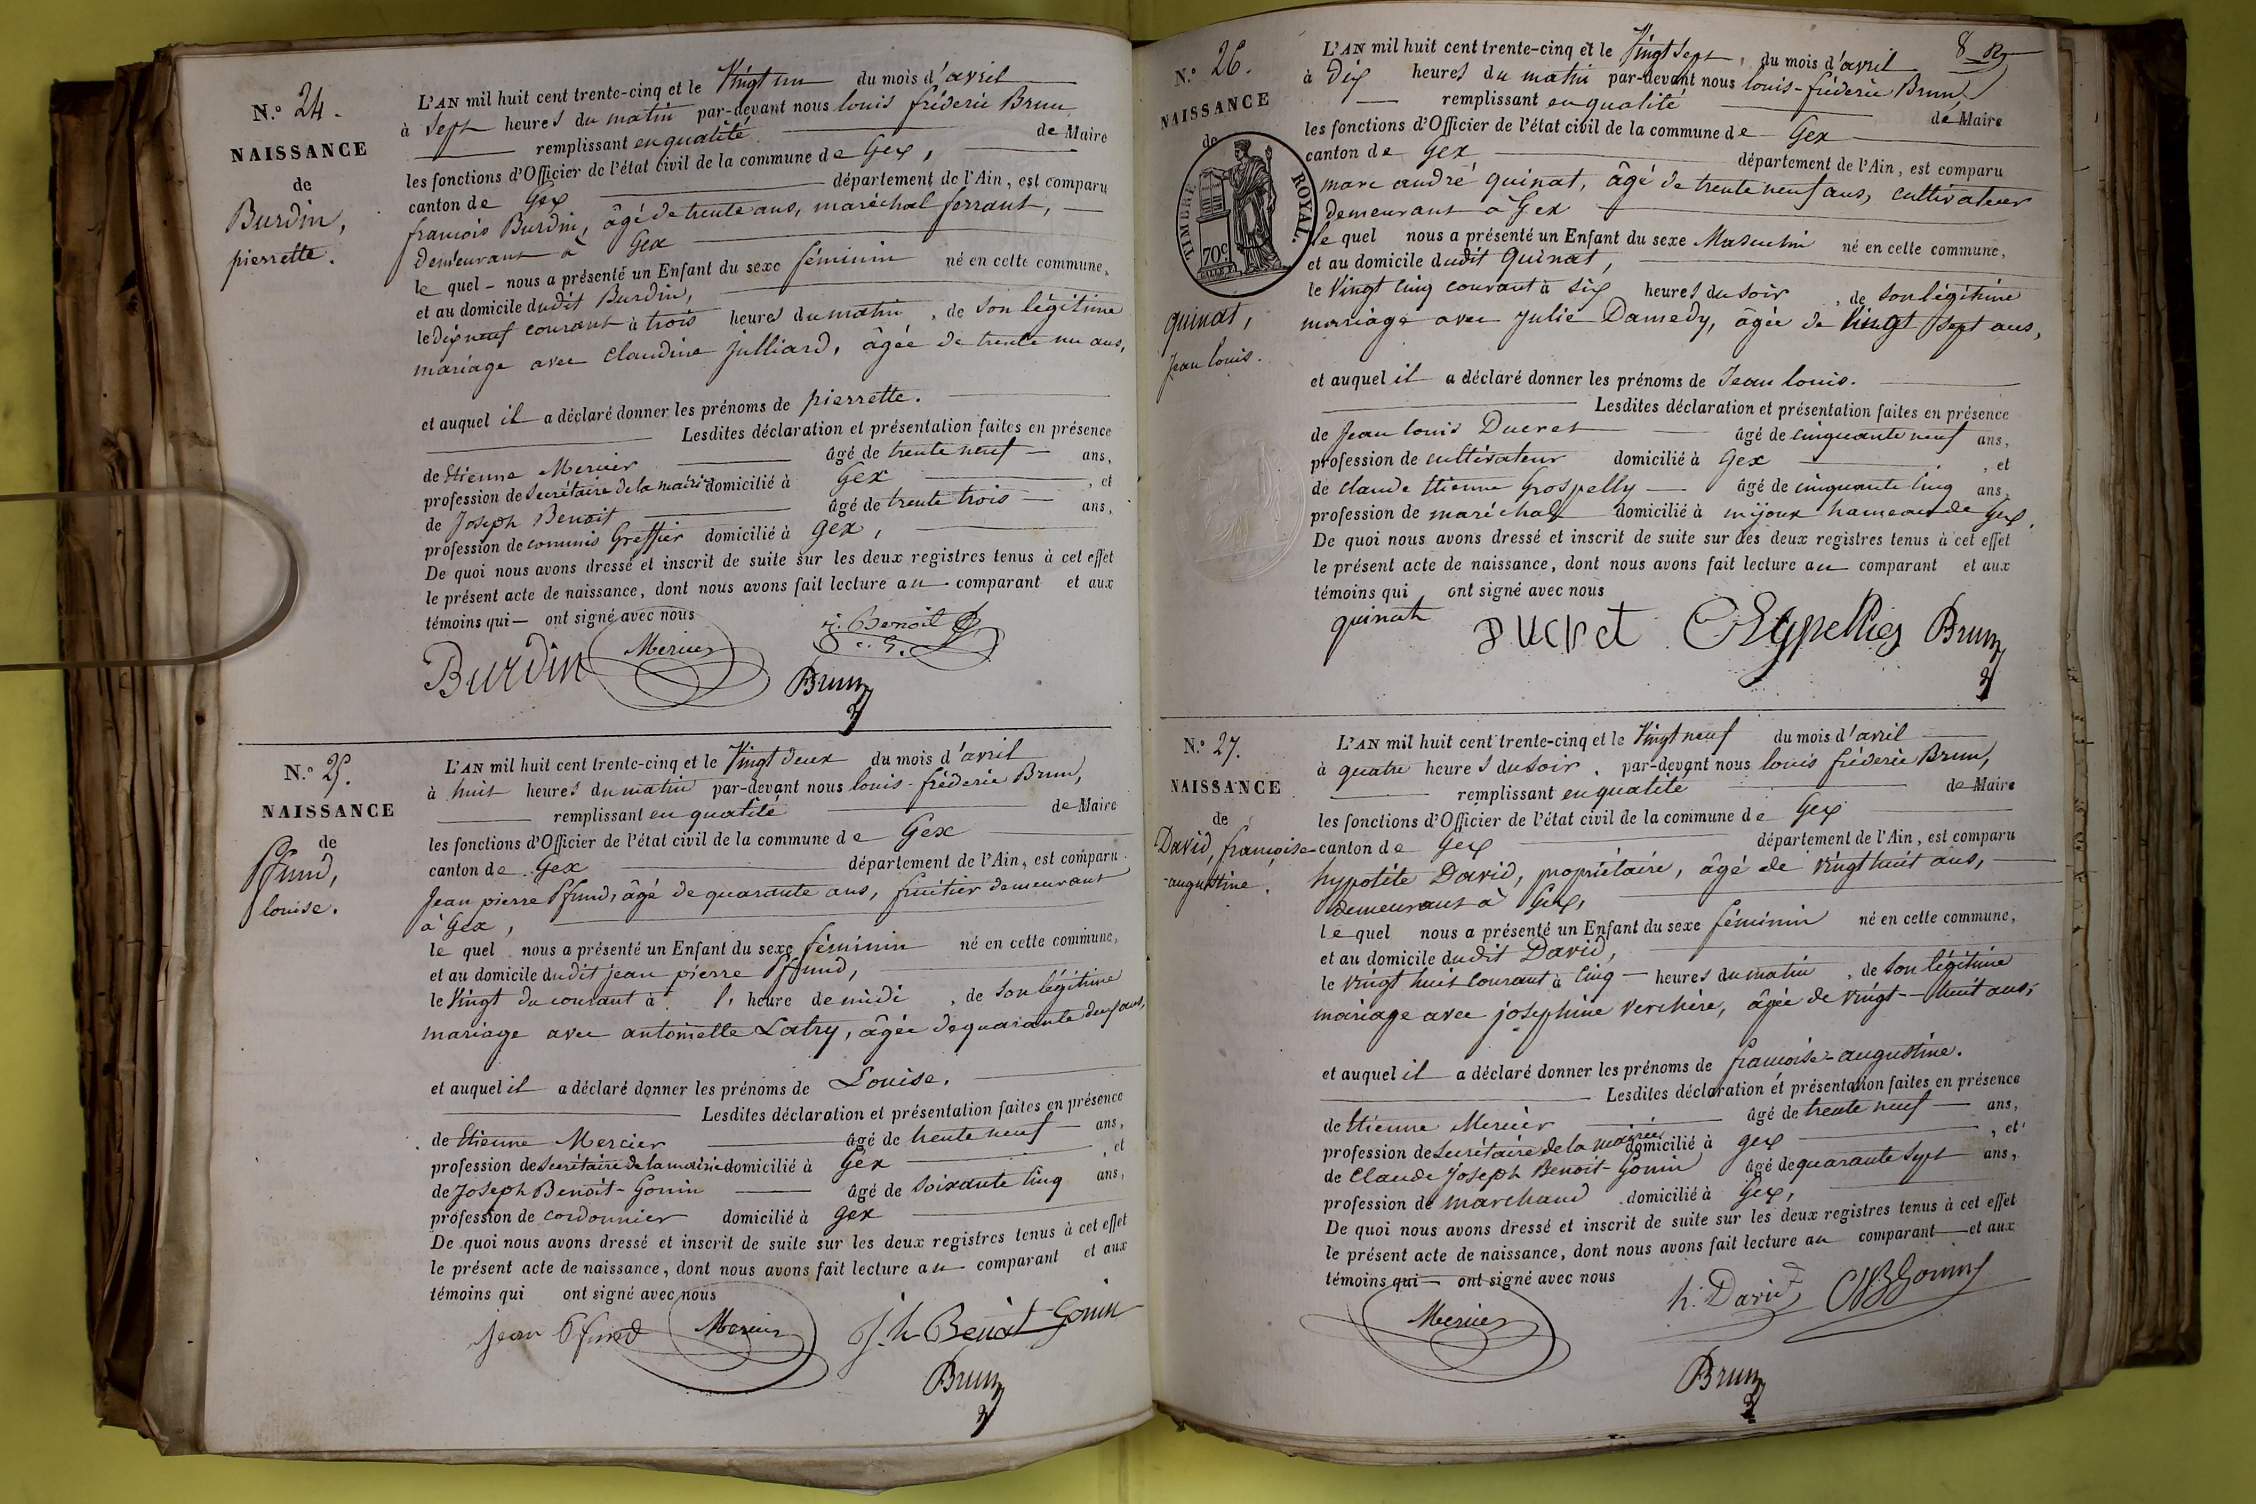 N.° 24.
NAISSANCE
de
Burdin,
pierrette.
L'AN mil huit cent trente-cinq et le Vingt un du mois d'avril
à Sept heures du matin par-devant nous louis fréderic Brun
remplissant en qualité de Maire
les fonctions d'Officier de l'état civil de la commune de Gex,
canton de Gex département de l'Ain, est comparu
françois Burdin, âgé de trente ans, maréchal ferrant,
demeurant à Gex
le quel nous a présenté un Enfant du sexe féminin né en cette commune,
et au domicile dudit Burdin,
le Dix neuf courant à trois heures du matin, de son légitime
mariage avec claudine Julliard, âgée de trente un ans,
et auquel il a déclaré donner les prénoms de pierrette.
Lesdites déclaration et présentation faites en présence
de Etienne Mercier âgé de trente neuf ans,
profession de Secrétaire de la mairie domicilié à Gex, et
de Joseph Benoit âgé de trente trois ans,
profession de commis Greffier domicilié à gex,
De quoi nous avons dressé et inscrit de suite sur les deux registres tenus à cet effet
le présent acte de naissance, dont nous avons fait lecture au comparant et aux
témoins qui ont signé avec nous
Burdin Mercier j. Benoit
Brun
N.° 25.
NAISSANCE
de
Pfund,
louise.
L'AN mil huit cent trente-cinq et le Vingt deux du mois d'avril
à huit heures du matin par-devant nous louis-fréderic Brun,
remplissant en qualité de Maire
les fonctions d'Officier de l'état civil de la commune de Gex
canton de Gex département de l'Ain, est comparu
Jean pierre Pfund, âgé de quarante ans, fruitier demeurant
à Gex,
le quel nous a présenté un Enfant du sexe féminin né en cette commune,
et au domicile dudit jean pierre Pfund,
le Vingt du courant à l' heure de midi, de son légitime
mariage avec antoinette Latry, âgée de quarante deux ans,
et auquel il a déclaré donner les prénoms de Louise.
Lesdites déclaration et présentation faites en présence
de Etienne Mercier âgé de trente neuf ans,
profession de Secrétaire de la mairie domicilié à Gex, et
de Joseph Benoit-Gonin âgé de soixante cinq ans,
profession de cordonnier domicilié à gex
De quoi nous avons dressé et inscrit de suite sur les deux registres tenus à cet effet
le présent acte de naissance, dont nous avons fait lecture au comparant et aux
témoins qui ont signé avec nous
jean Pfund Mercier J.h Benoit Gonin
Brun
8
N.° 26.
NAISSANCE
de
TIMBRE ROYAL.
70c
quinat,
Jean louis.
L'AN mil huit cent trente-cinq et le Vingt sept, du mois d'avril
à Dix heures du matin par-devant nous louis-fréderic Brun,
remplissant en qualité de Maire
les fonctions d'Officier de l'état civil de la commune de Gex
canton de Gex département de l'Ain, est comparu
marc andré quinat, âgé de trente neuf ans, cultivateur
demeurant à Gex
le quel nous a présenté un Enfant du sexe Masculin né en cette commune,
et au domicile dudit quinat,
le Vingt cinq courant à six heures du soir, de son légitime
mariage avec Julie Damedy, âgée de Vingt sept ans,
et auquel il a déclaré donner les prénoms de Jean louis.
Lesdites déclaration et présentation faites en présence
de Jean louis Ducret âgé de cinquante neuf ans,
profession de cultivateur domicilié à Gex, et
de claude Etienne Grospelly âgé de cinquante cinq ans,
profession de maréchal domicilié à mijoux hameau de Gex,
De quoi nous avons dressé et inscrit de suite sur les deux registres tenus à cet effet
le présent acte de naissance, dont nous avons fait lecture au comparant et aux
témoins qui ont signé avec nous
quinat Ducret Brun
N.° 27.
NAISSANCE
de
David, françoise-
-augustine.
L'AN mil huit cent trente-cinq et le Vingt neuf du mois d'avril
à quatre heures du soir, par-devant nous louis fréderic Brun,
remplissant en qualité de Maire
les fonctions d'Officier de l'état civil de la commune de Gex
canton de Gex département de l'Ain, est comparu
hypolite David, propriétaire, âgé de vingt huit ans,
demeurant à Gex,
le quel nous a présenté un Enfant du sexe féminin né en cette commune,
et au domicile dudit David,
le vingt huit courant à cinq heures du matin, de son légitime
mariage avec joséphine Verchère, âgée de vingt-huit ans,
et auquel il a déclaré donner les prénoms de françoise-augustine.
Lesdites déclaration et présentation faites en présence
de Etienne Mercier âgé de trente neuf ans,
profession de Secrétaire de la mairie domicilié à gex, et
de Claude Joseph Benoit-Gonin âgé de quarante sept ans,
profession de marchand domicilié à Gex,
De quoi nous avons dressé et inscrit de suite sur les deux registres tenus à cet effet
le présent acte de naissance, dont nous avons fait lecture au comparant et aux
témoins qui ont signé avec nous
Mercier h. David CJBGonin
Brun